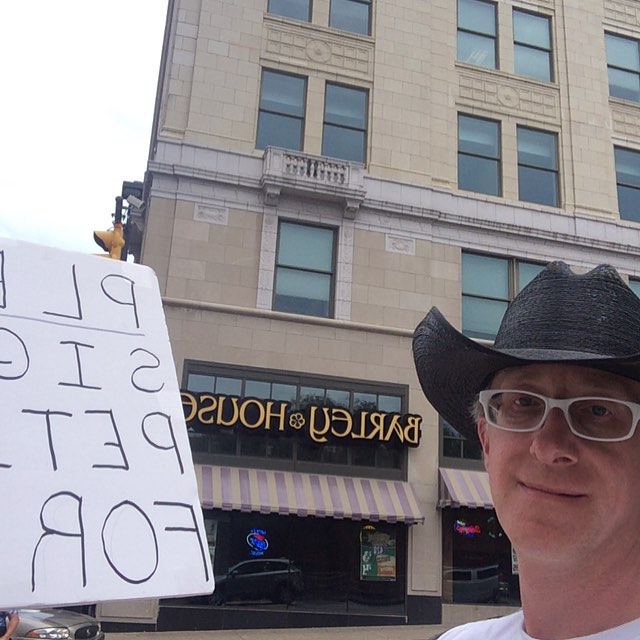 PLE
SIG
PETI
FOR
BARLEY HOUSE